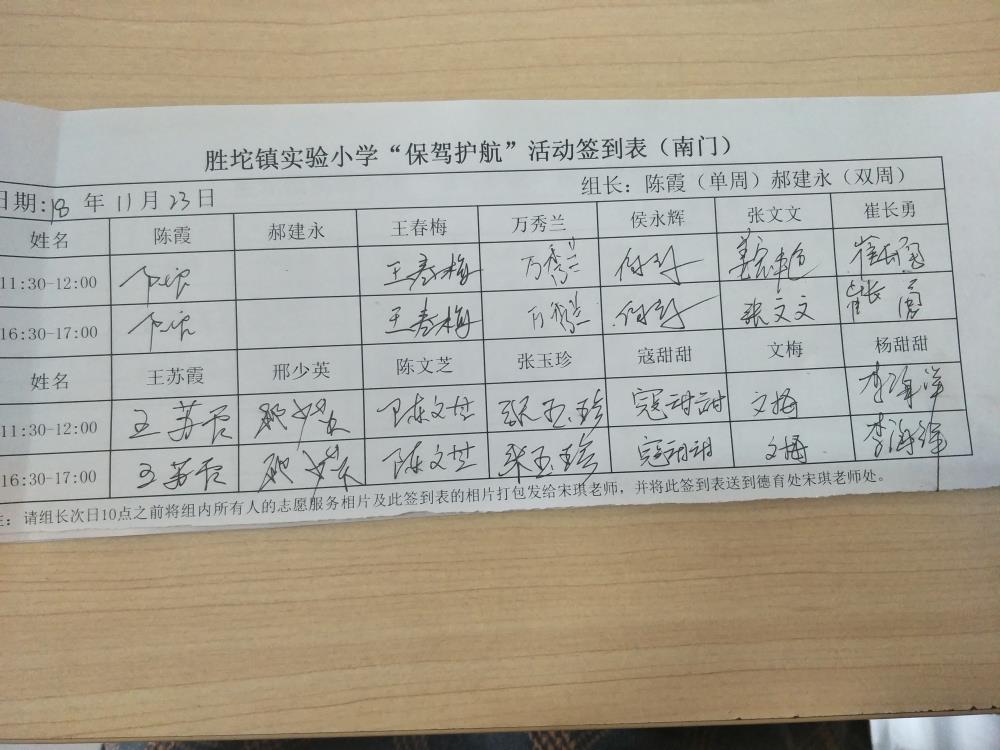 胜坨镇实验小学“保驾护航”活动签到表（南门）
日期:18 年 11月 23日 组长：陈霞（单周）郝建永（双周）
姓名 陈霞 郝建永 王春梅 万秀兰 侯永辉 张文文 崔长勇
11:30-12:00 王春梅 万秀兰 崔长勇
16:30-17:00 王春梅 万秀兰 张文文 崔长勇
姓名 王苏霞 邢少英 陈文芝 张玉珍 寇甜甜 文梅 杨甜甜
11:30-12:00 王苏霞 陈文芝 张玉珍 寇甜甜 文梅 李海洋
16:30-17:00 王苏霞 陈文芝 张玉珍 寇甜甜 文梅 李海洋
注：请组长次日10点之前将组内所有人的志愿服务相片及此签到表的相片打包发给宋琪老师，并将此签到表送到德育处宋琪老师处。